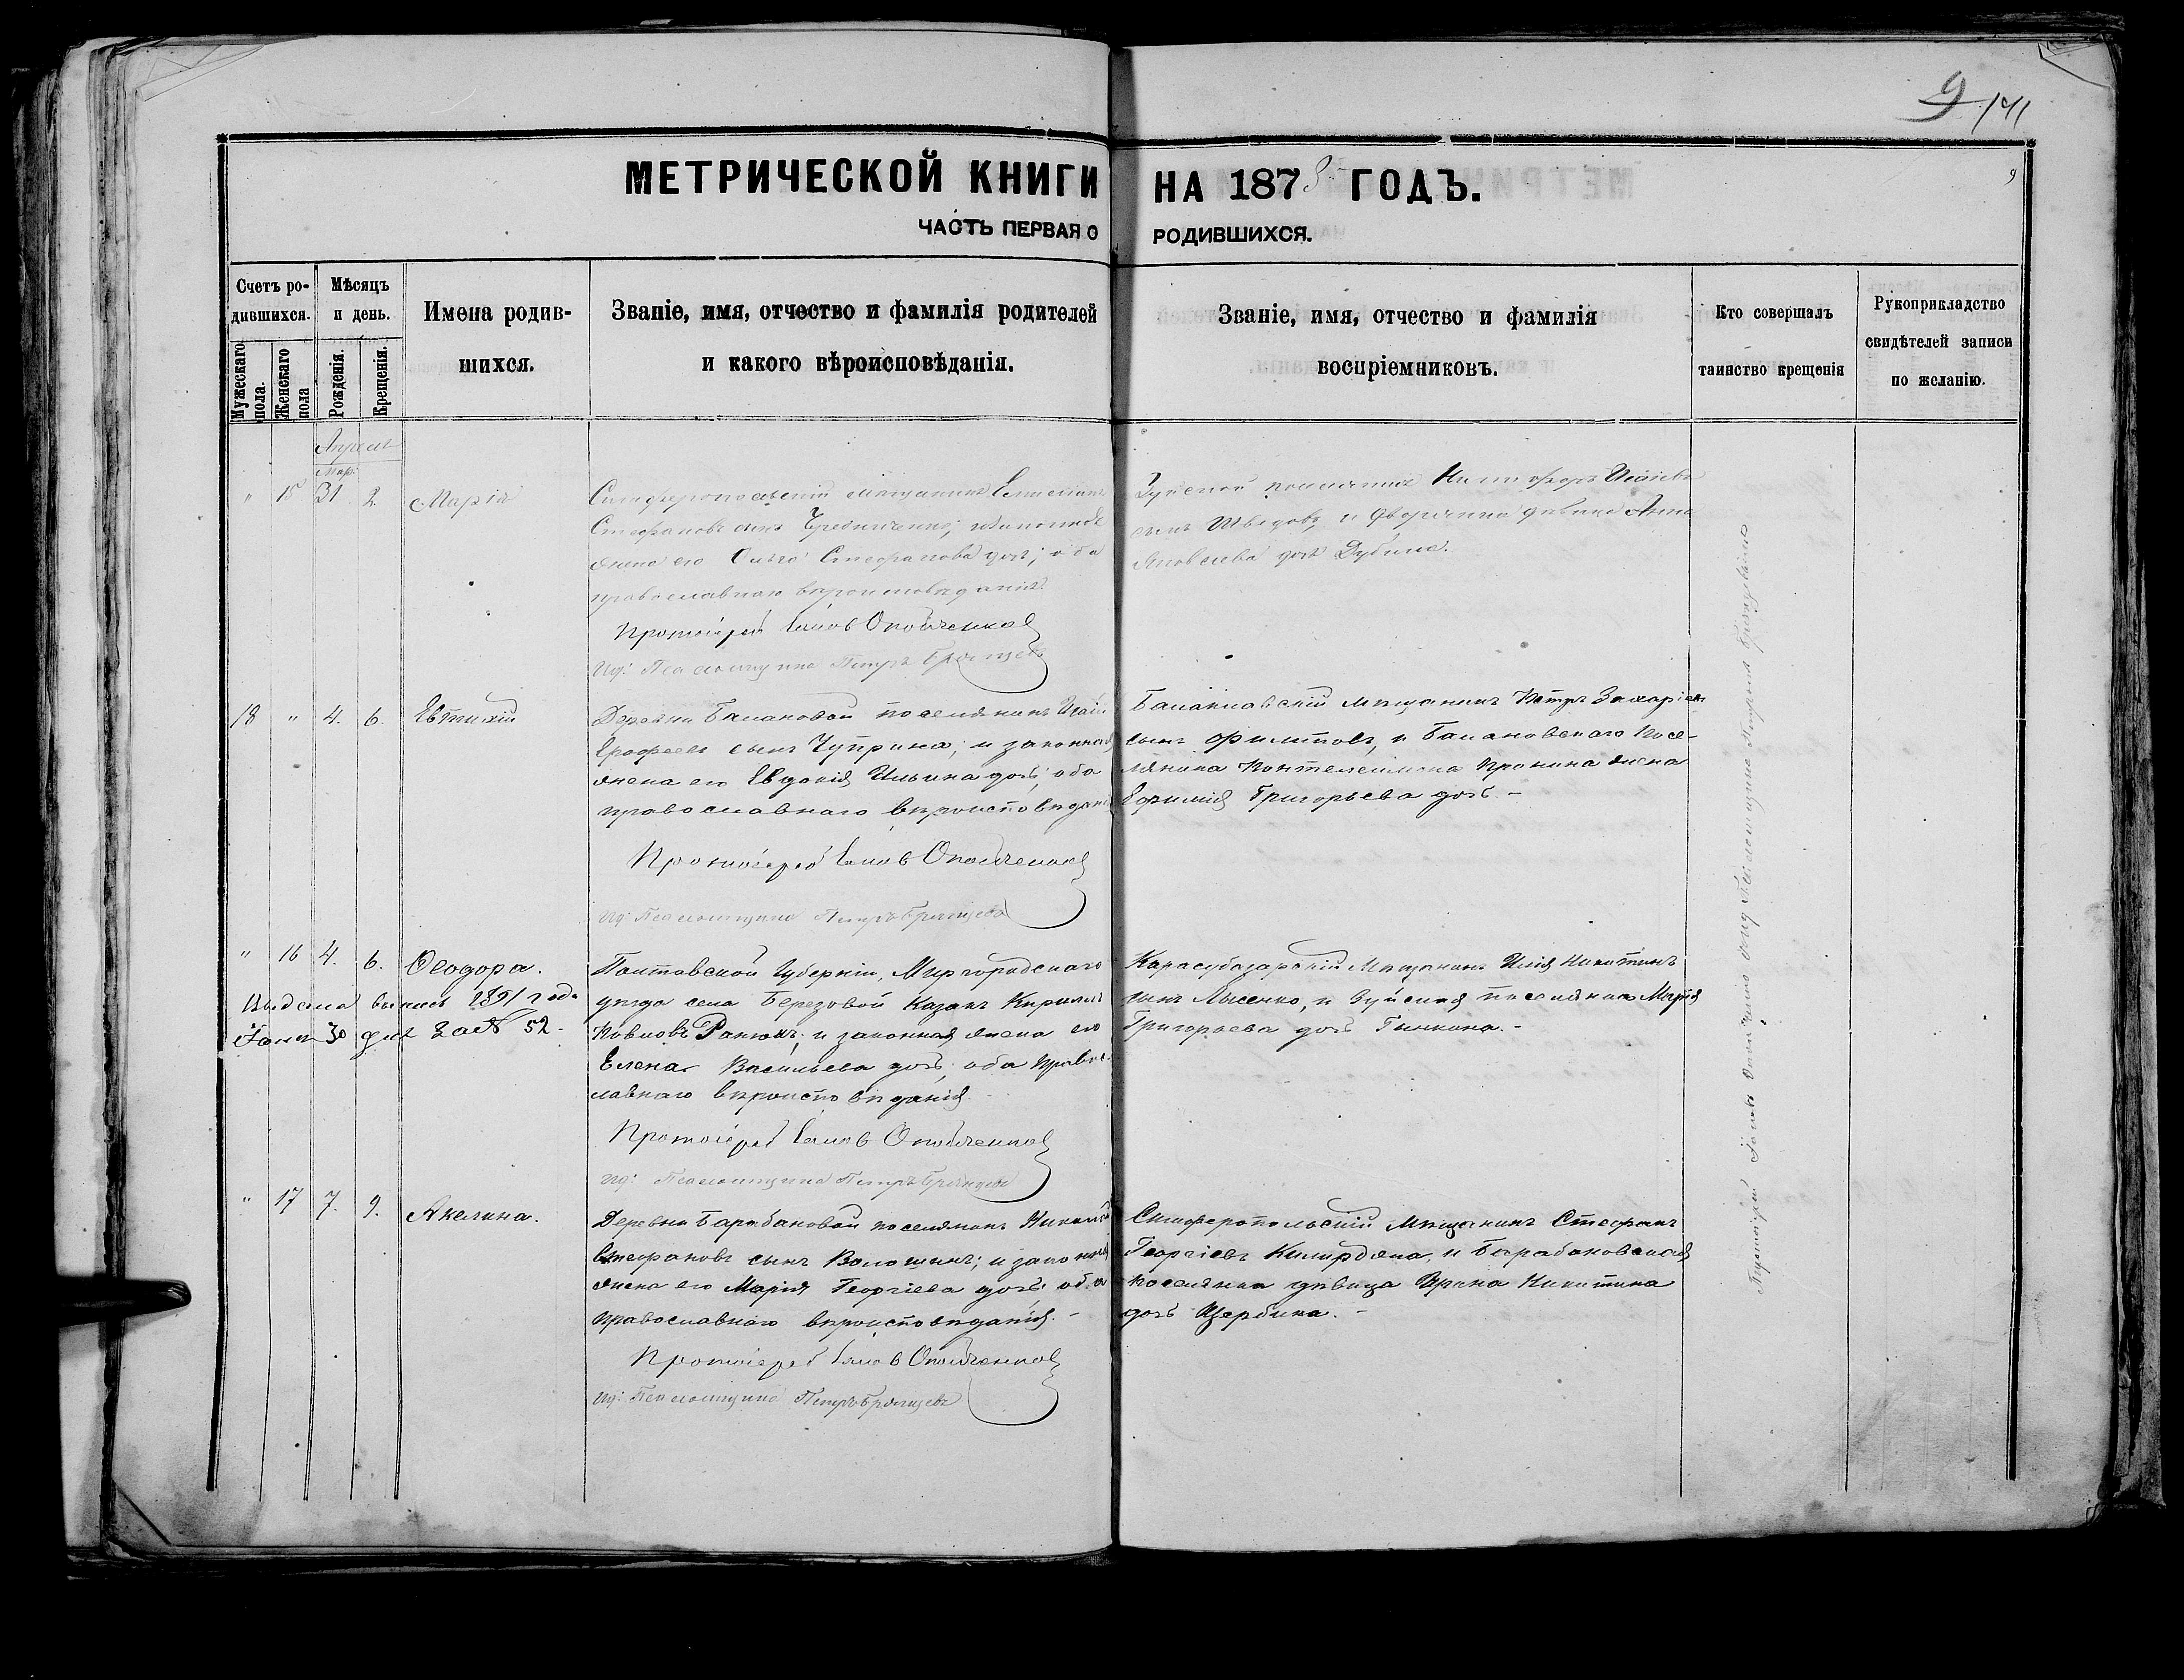 9 141
9
МЕТРИЧЕСКОЙ КНИГИ НА 187 ГОДЪ.
ЧАСТЬ ПЕРВАЯ О РОДИВШИХСЯ.
Счетъ ро-
дившихся.
Мужескаго пола.
Женскаго пола
Мѣсяцъ
и день.
Рожденія.
Крещенія.
Имена родив-
шихся.
Званіе, имя, отчество и фамилія родителей
и какого вѣроисповѣданія.
Званіе, имя, отчество и фамилія
воспріемниковъ.
Кто совершалъ
таинство крещенія
Рукоприкладство
свидѣтелей записи
по желанію.
Апрель
Мар:
" 15 31 2. Марія
Симферопольскій мещанинъ
Стефановъ сынъ Чередниченко; и законная
жена его Ольга Стефанова дочь; оба
православнаго вѣроисповѣданія.
Протоіерей Іаковъ
Ид: Псаломщика Петръ Брянцевъ
Зуйской поселянинъ Никифоръ
сынъ Шведовъ, и девица Анна
Яковлева дочь Дубина.
18 " 4. 6. Евтихій
Деревни Балановой поселянинъ
Ерофеевъ сынъ Чуприна; и законная
жена его Евдокія Ильина дочь; оба
православнаго вѣроисповѣданія
Протоіерей Іаковъ
Ид: Псаломщика Петръ Брянцевъ
Балаклавскій мѣщанинъ Петръ Захаріевъ
сынъ Филиповъ, и Балановскаго посе-
лянина Пантелеимона Пронина жена
Ефимія Григорьева дочь. -
" 16 4. 6. Ѳеодора.
Выдена выпись 1891 года
30 дня за № 52.
Полтавской Губерніи, Миргородскаго
уезда села Березовой Казакъ Кирилъ
Павловъ и законная жена его
Елена Васильева дочь; оба Право-
славнаго вѣроисповѣданія.
Протоіерей Іаковъ
Ид: Псаломщика Петръ Брянцевъ
Карасубазарскій Мѣщанинъ Илія Никитинъ
сынъ Лысенко, и Зуйская поселянка Марія
Григорьева дочь -
" 17 7. 9. Акелина.
Деревни Барабановой поселянинъ Николай
Стефановъ сынъ Волошинъ; и законная
жена его Марія Георгіева дочь; оба
православнаго вѣроисповѣданія. -
Протоіерей Іаковъ
Ид: Псаломщика Петръ Брянцевъ
Симферопольскій Мѣщанинъ Стефанъ
Георгіевъ и Барабановская
поселянка дѣвица Ирина Никитина
дочь Щербина. -